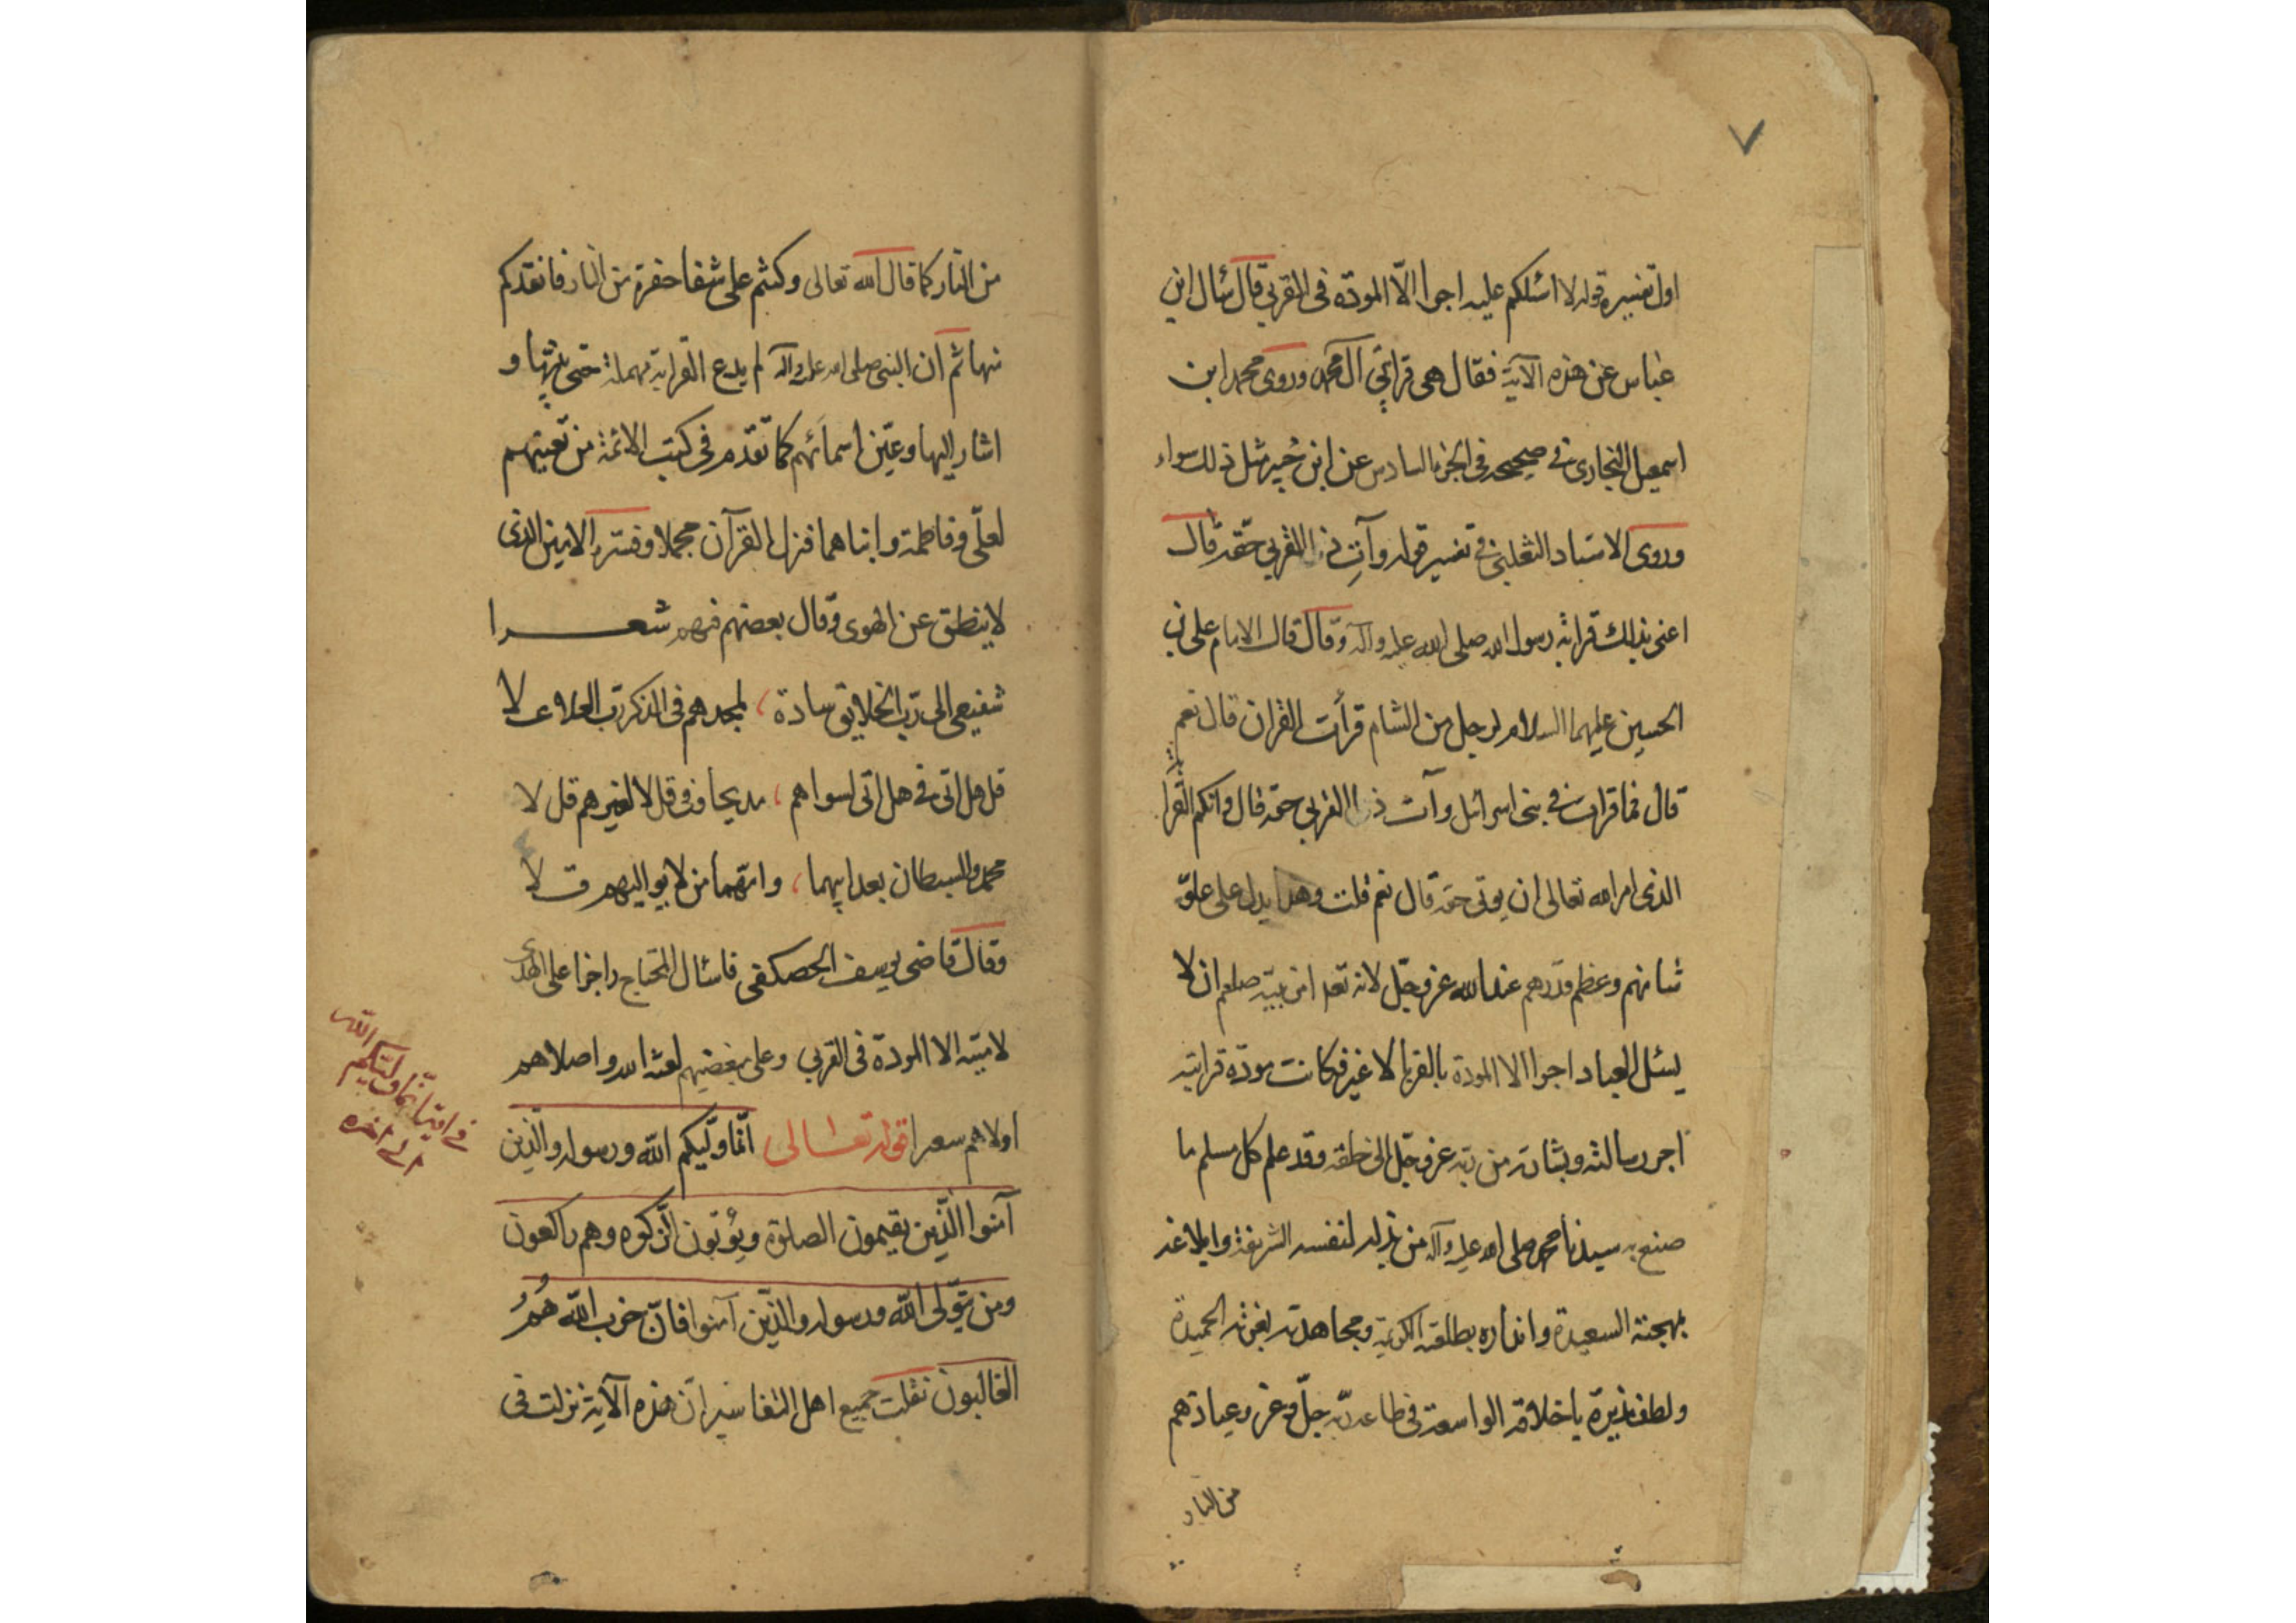 ٧
اول تفسيره قوله لا اسئلكم عليه اجرا الّا المودّه فى القربى قال سُال ابن
عباس عن هذه الآية فقال هى قرابتي آل محمد وروى محمد ابن
اسمعيل البخارى فے صحيحه فى الجزء السادس عن ابن جُبير مثل ذلك سواء
وروى الاستاد الثعلبى فے تفسير قوله وآتِ ذا القربى حقه قال
اعنى بذلك قرابة رسول الله صلى الله عليه وآله وقال قال الامام على بن
الحسين عليهما السلام لرجل من الشام قرأت القران قال نعم
قال فما قرات فے بنى اسرائل وآت ذا القربى حقه قال وانكم القرابة
الذى امر الله تعالى ان يوتى حقه قال نعم قلت وهذا يدل على علوّ
شانهم وعظم قدرهم عند الله عز وجّل لانه تعه امر نبيّه صلعم ان لا
يسئل العباد اجرا الا المودة بالقربا لا غير فكانت مودّة قرابته
اجر رسالته وبشارته من ربه عز وجّل الى خلقه وقد علم كل مسلم ما
صنع به سيدنا محمد صلى الله عليه وآله من بذله لنفسه الشريفة وابلاغه
بهجته السعيدة وانذاره بطلعته الكريمة ومجاهدته بغرته الحميدة
ولطف نذيرة باخلاقه الواسعة فى طاعة ربّه جلّ وعز وعبادتهم
من النار
من النّار كما قال الله تعالى وكنتم على شفا حفرة من النار فانقذكم
منها ثم ان النبى صلى الله عليه وآله لم يدع القرابة مهملة حتى بيّنها و
اشار اليها وعيّن اسمائهم كما تقدّم فى كتب الائمة من تعيينهم
لعلّى وفاطمة وابناهما فنزل القرآن مجملا وفسّره الامين الذى
لا ينطق عن الهوى وقال بعضهم فيهم شعرا
شفيعى الى ربّ الخلايق سادة، لمجدهم فى الذكر ربّ العلا علا
قل هل اتى فے هل اتى لسواهم، مديحا وفى قل لا لغيرهم قل لا
محمد والسبطان بعد ابيهما، وامّهما من لا يواليهم قلا
وقال قاضى يوسف الحصكفى فاسئال المحتاج راجزا على الهدى
لا يبتغ الا المودّة فى القربى وعلى مبغضيهم لعنة الله واصلاهم
اولاهم سعيرا قوله تعالى انّما وليّكم الله ورسوله والّذين
آمنوا الّذين يقيمون الصلوة ويُؤتون الزّكوه وهم راكعون
ومن يتوّلى الله ورسوله والّذين آمنوا فانّ حزب الله هُمُ
الغالبون نقلت جميع اهل التفاسير ان هذه الآية نزلت فى
فے اية انّما وليّكم الله
الى اخره